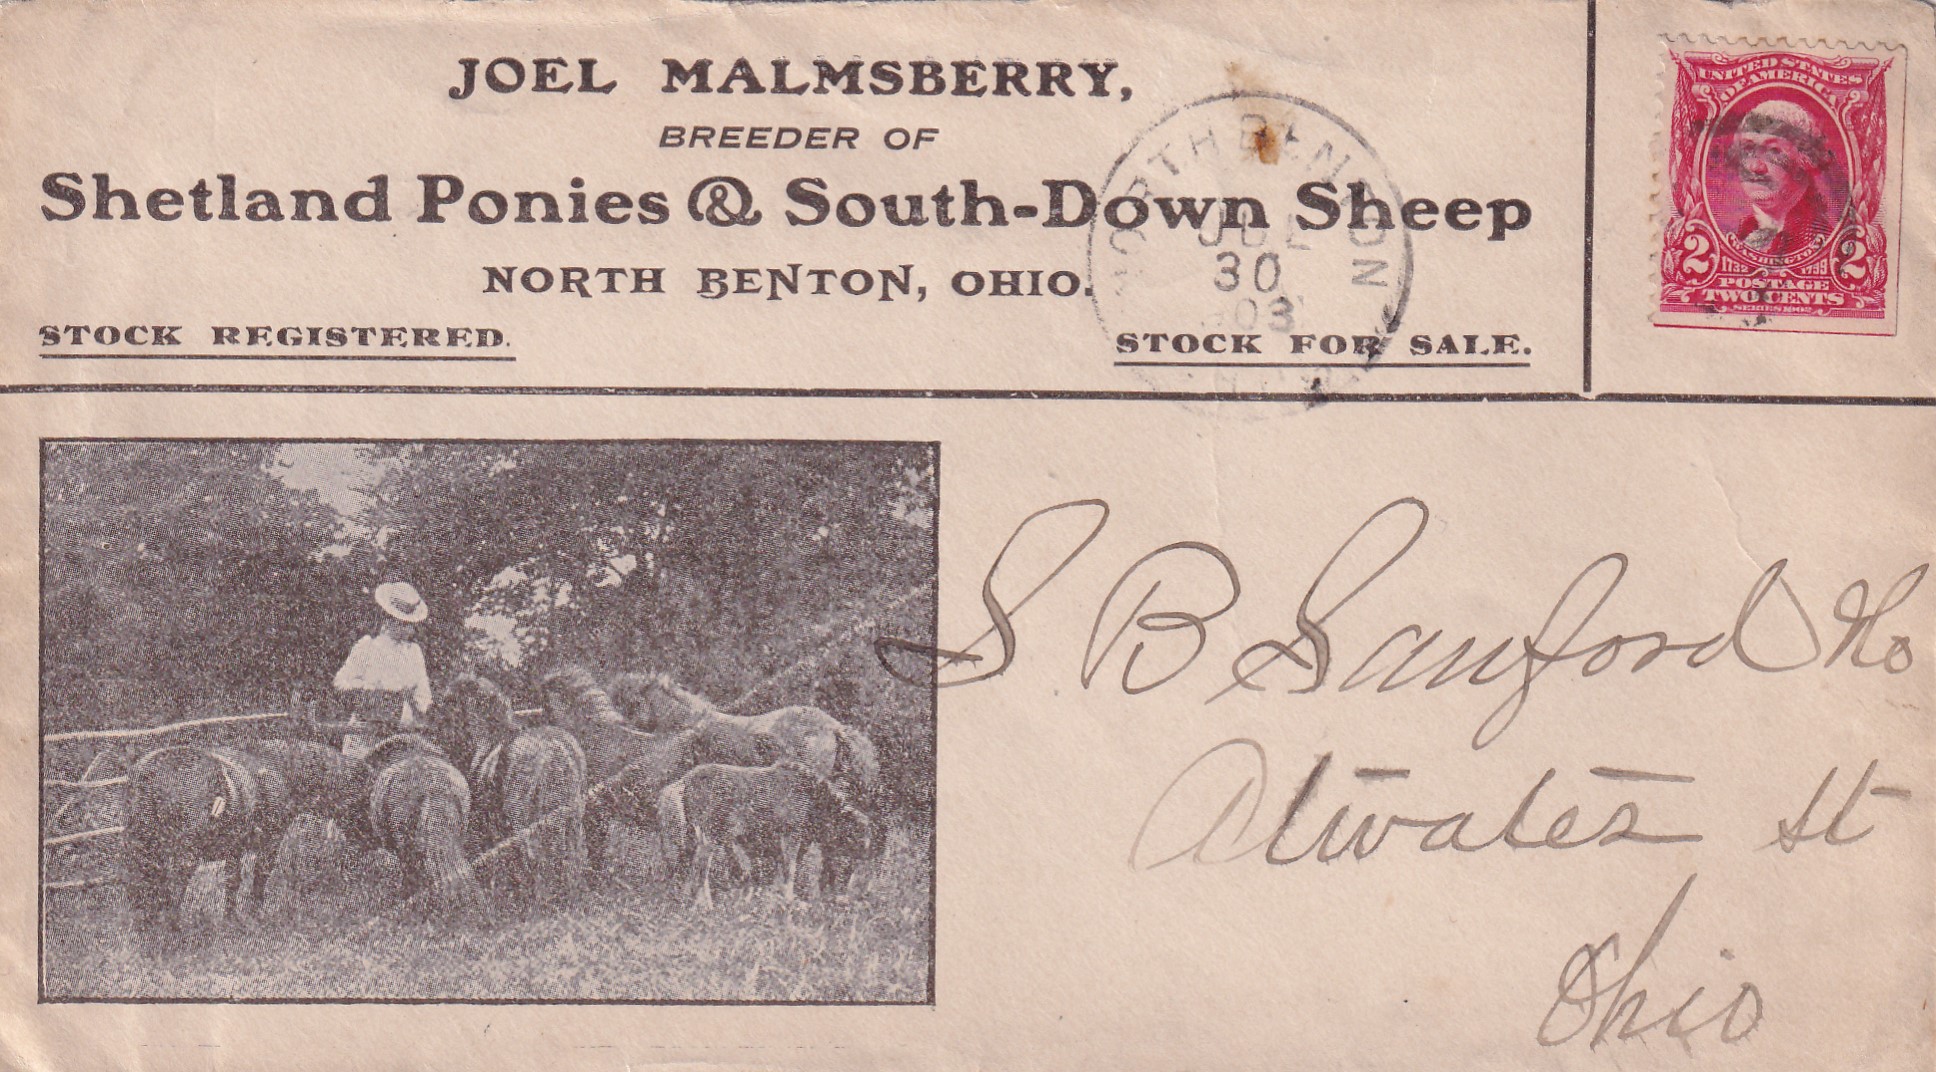 JOEL MALMSBERRY,
BREEDER OF
Shetland Ponies & South-Down Sheep
NORTH BENTON, OHIO.
STOCK REGISTERED.
STOCK FOR SALE.
NORTH BENTON
JUL
30
1903
UNITED STATES
OF AMERICA
WASHINGTON
2 1732 1799 2
POSTAGE
TWO CENTS
SERIES 1902
S B Sanford
Atwater St
Ohio